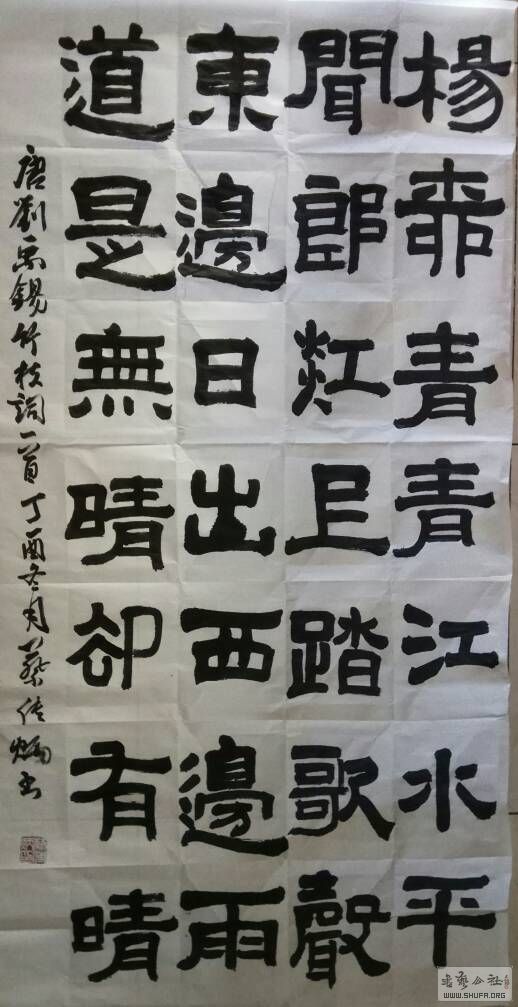 楊柳青青江水平
聞郎江上踏歌聲
東邊日出西邊雨
道是無晴却有晴
唐劉禹錫竹枝詞一首丁酉冬月蔡书
书艺公社
WWW.SHUFR.ORG